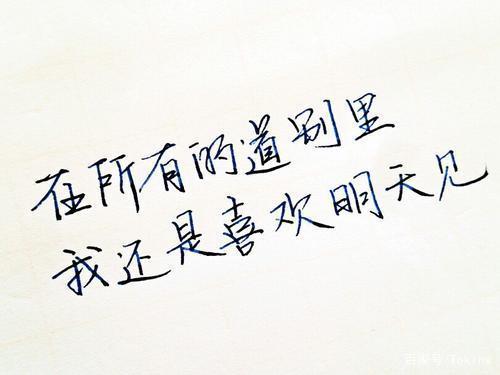 在所有的道别里
我还是喜欢明天见
百家号/Tokins